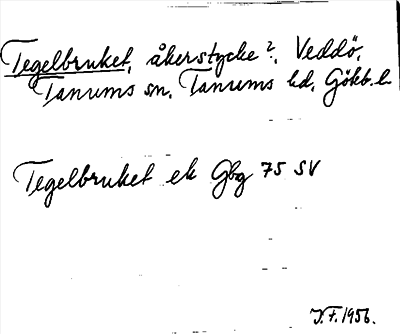 Tegelbruket, åkerstycke?, Veddö,
Tanums sn, Tanums hd, Gökb. l.
Tegelbruket ek Gbg 75 SV
J.F. 1956.